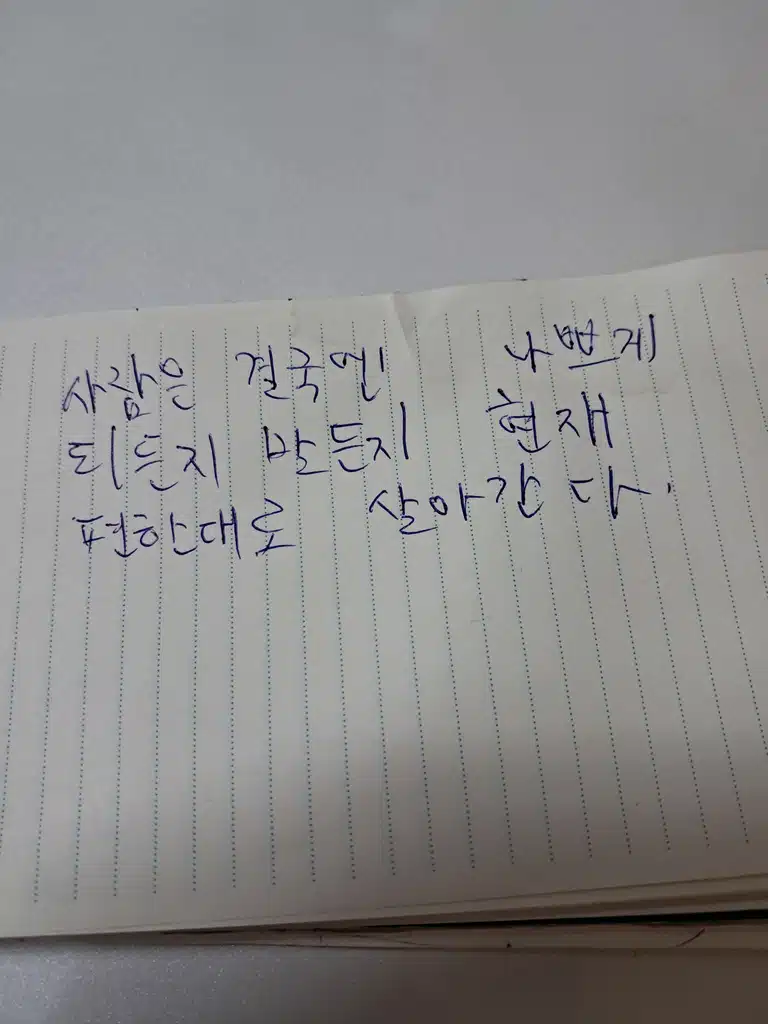 사람은 결국엔 나쁘게
되든지 말든지 현재
편한대로 살아간다.